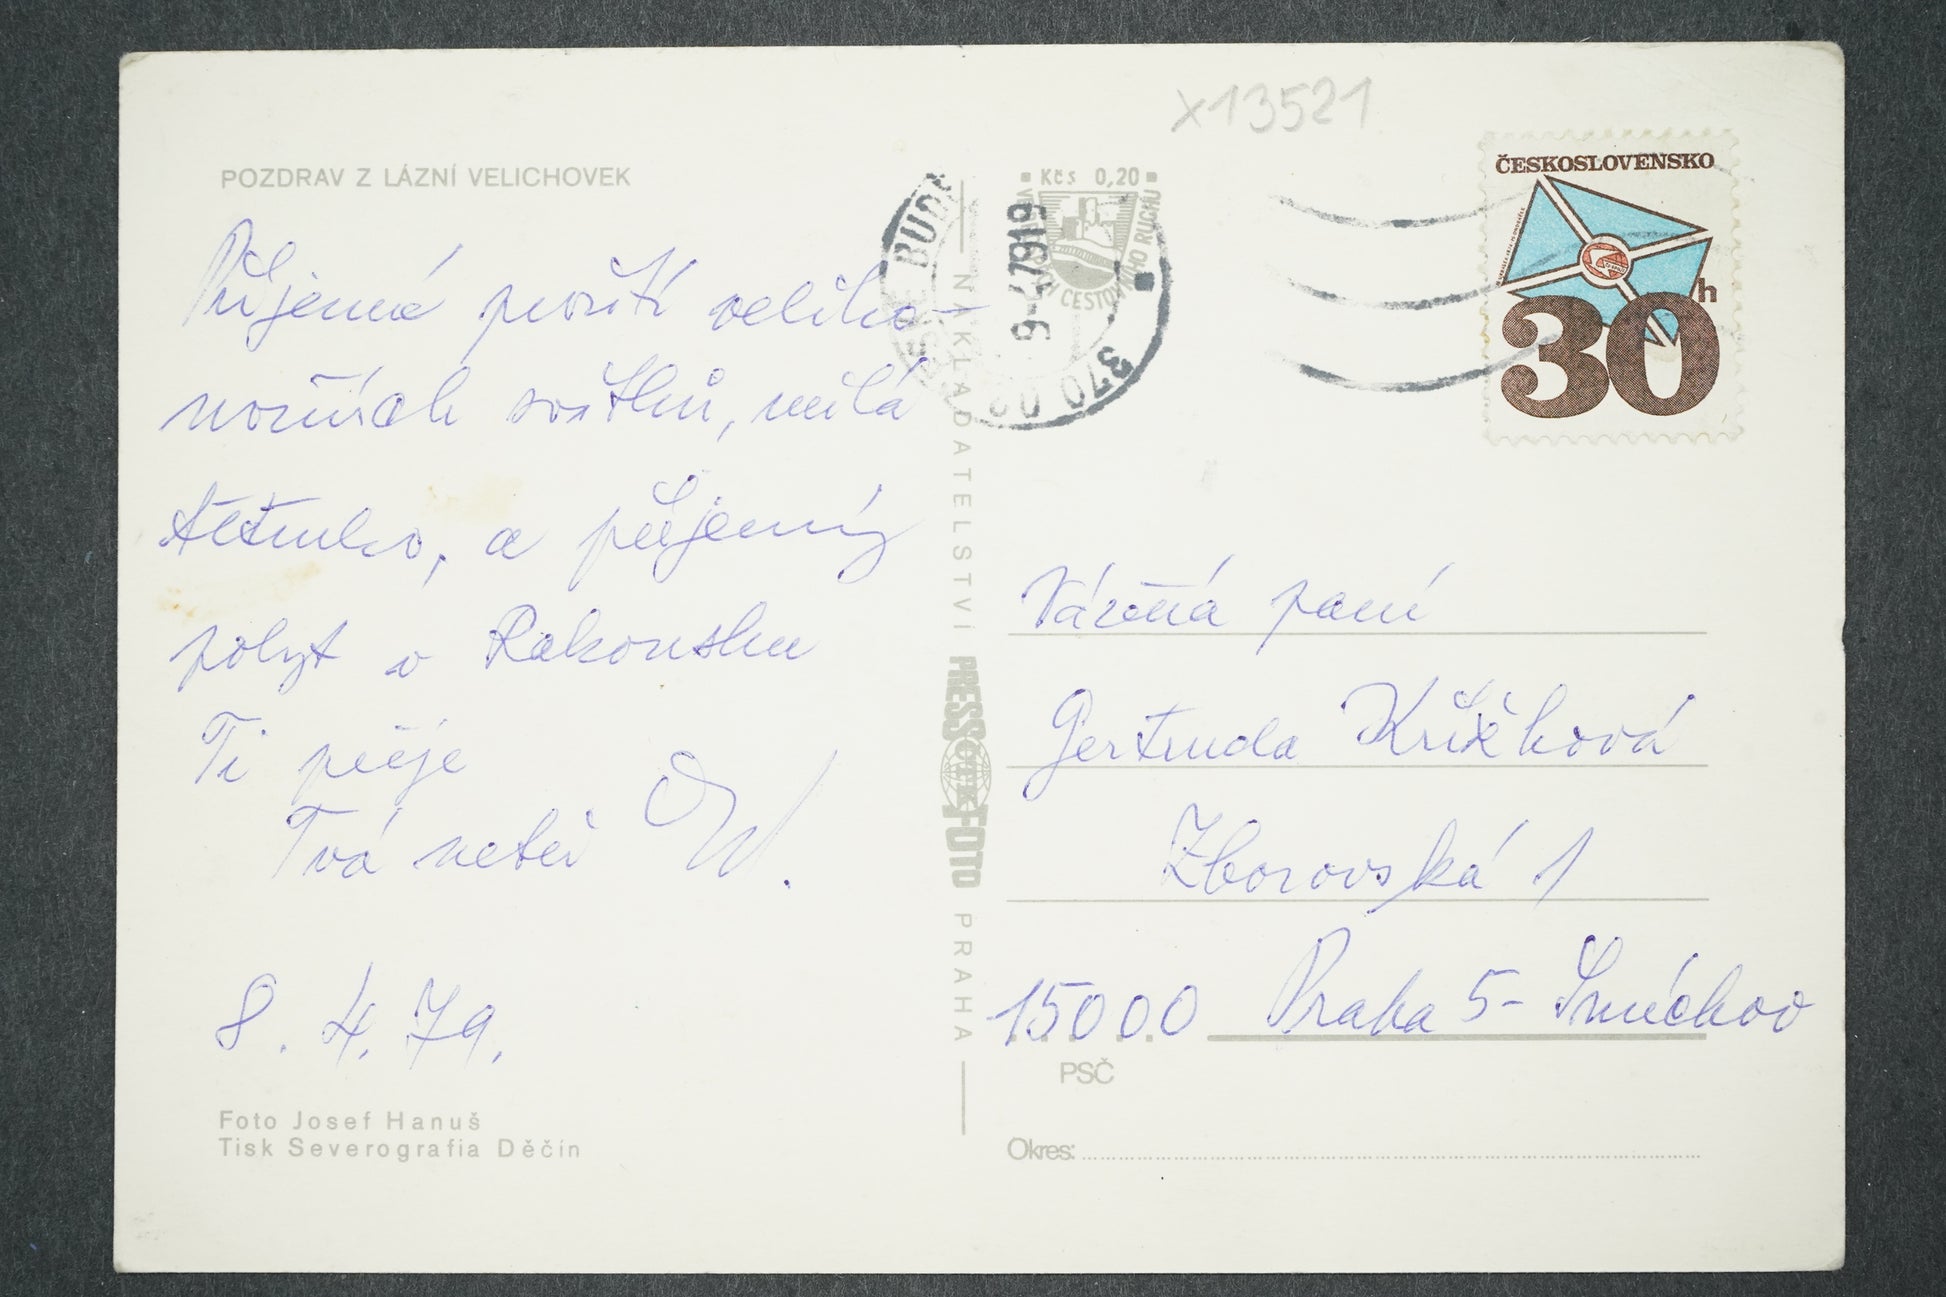 x13521
POZDRAV Z LÁZNÍ VELICHOVEK
Příjemné prožití veliko-
nočních svátků, milá
tetinko, a příjemný
pobyt v Rakousku
Ti přeje
Tvá neteř
8. 4. 79.
Foto Josef Hanuš
Tisk Severografia Děčín
NAKLADATELSTVÍ PRESSFOTO PRAHA
Kčs 0,20
370 02
ČESKOSLOVENSKO
30h
Vážená paní
Gertruda Křížková
Zborovská 1
15000 Praha 5- Smíchov
PSČ
Okres: